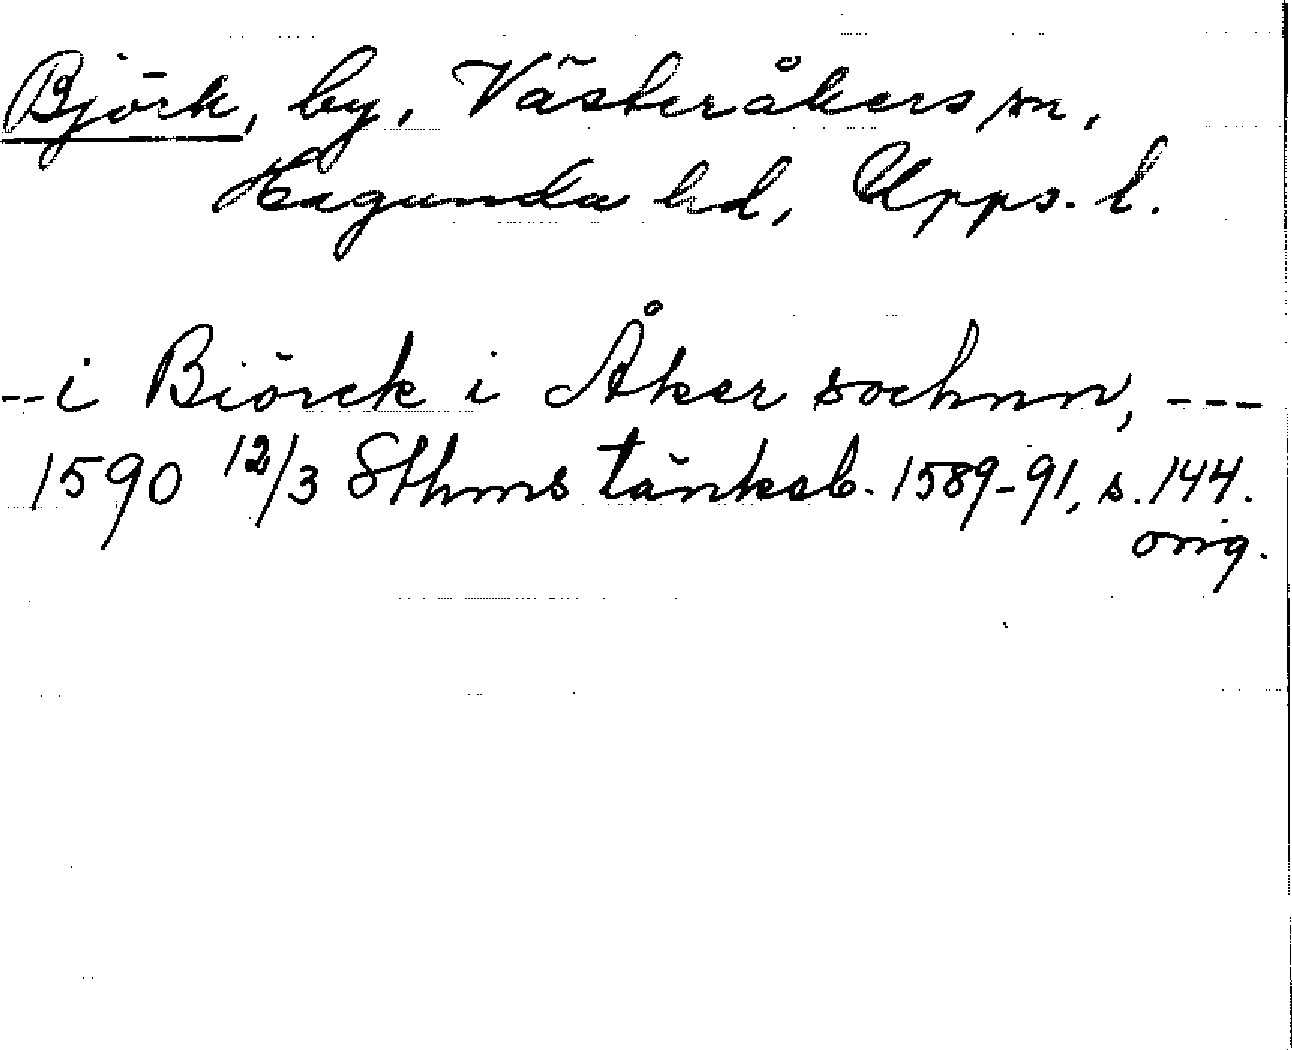 Björk, by, Västeråkers sn,
Hagunda hd, Upps. l.
-- i Biörck i Åker sochnn, ---
1590 12/3 Sthms tänkeb. 1589-91, s. 144.
orig.